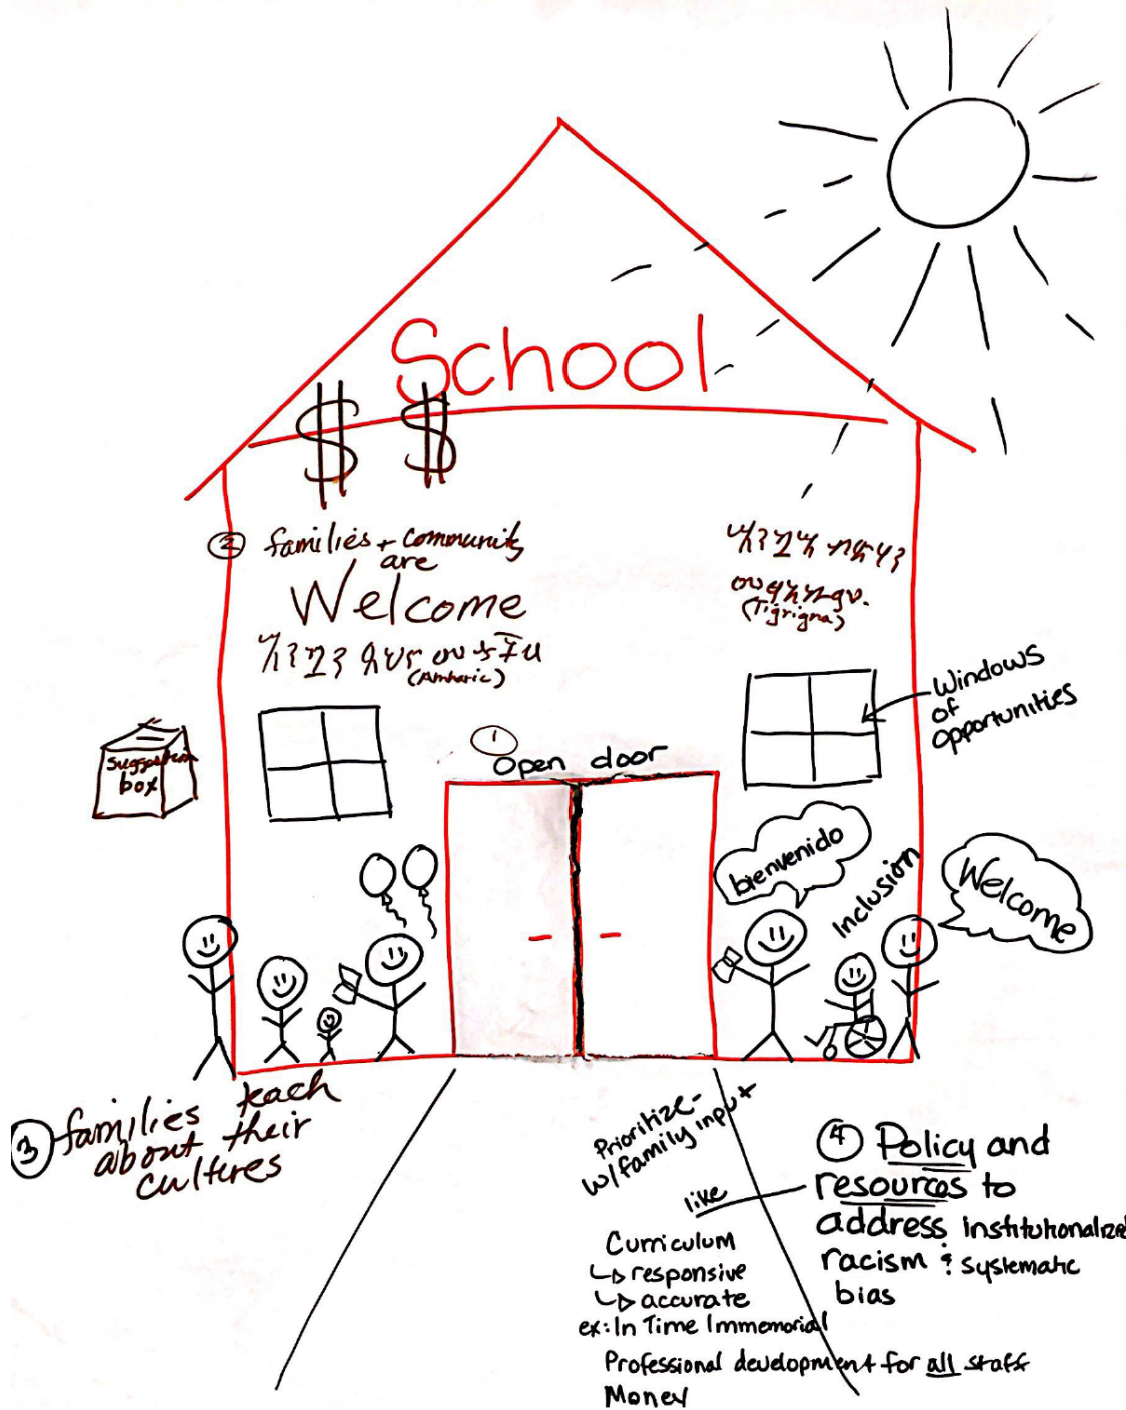 School
$ $
② families + community
are
Welcome
እንኳን
(Amharic)
(Tigrigna)
Windows
of
opportunities
suggestion
box
①
Open door
bienvenido
Inclusion
Welcome
③ families teach
about their
cultures
Prioritize-
w/family input
like
Curriculum
↳ responsive
↳ accurate
ex: In Time Immemorial
Professional development for all staff
Money
④ Policy and
resources to
address institutionalized
racism & systematic
bias